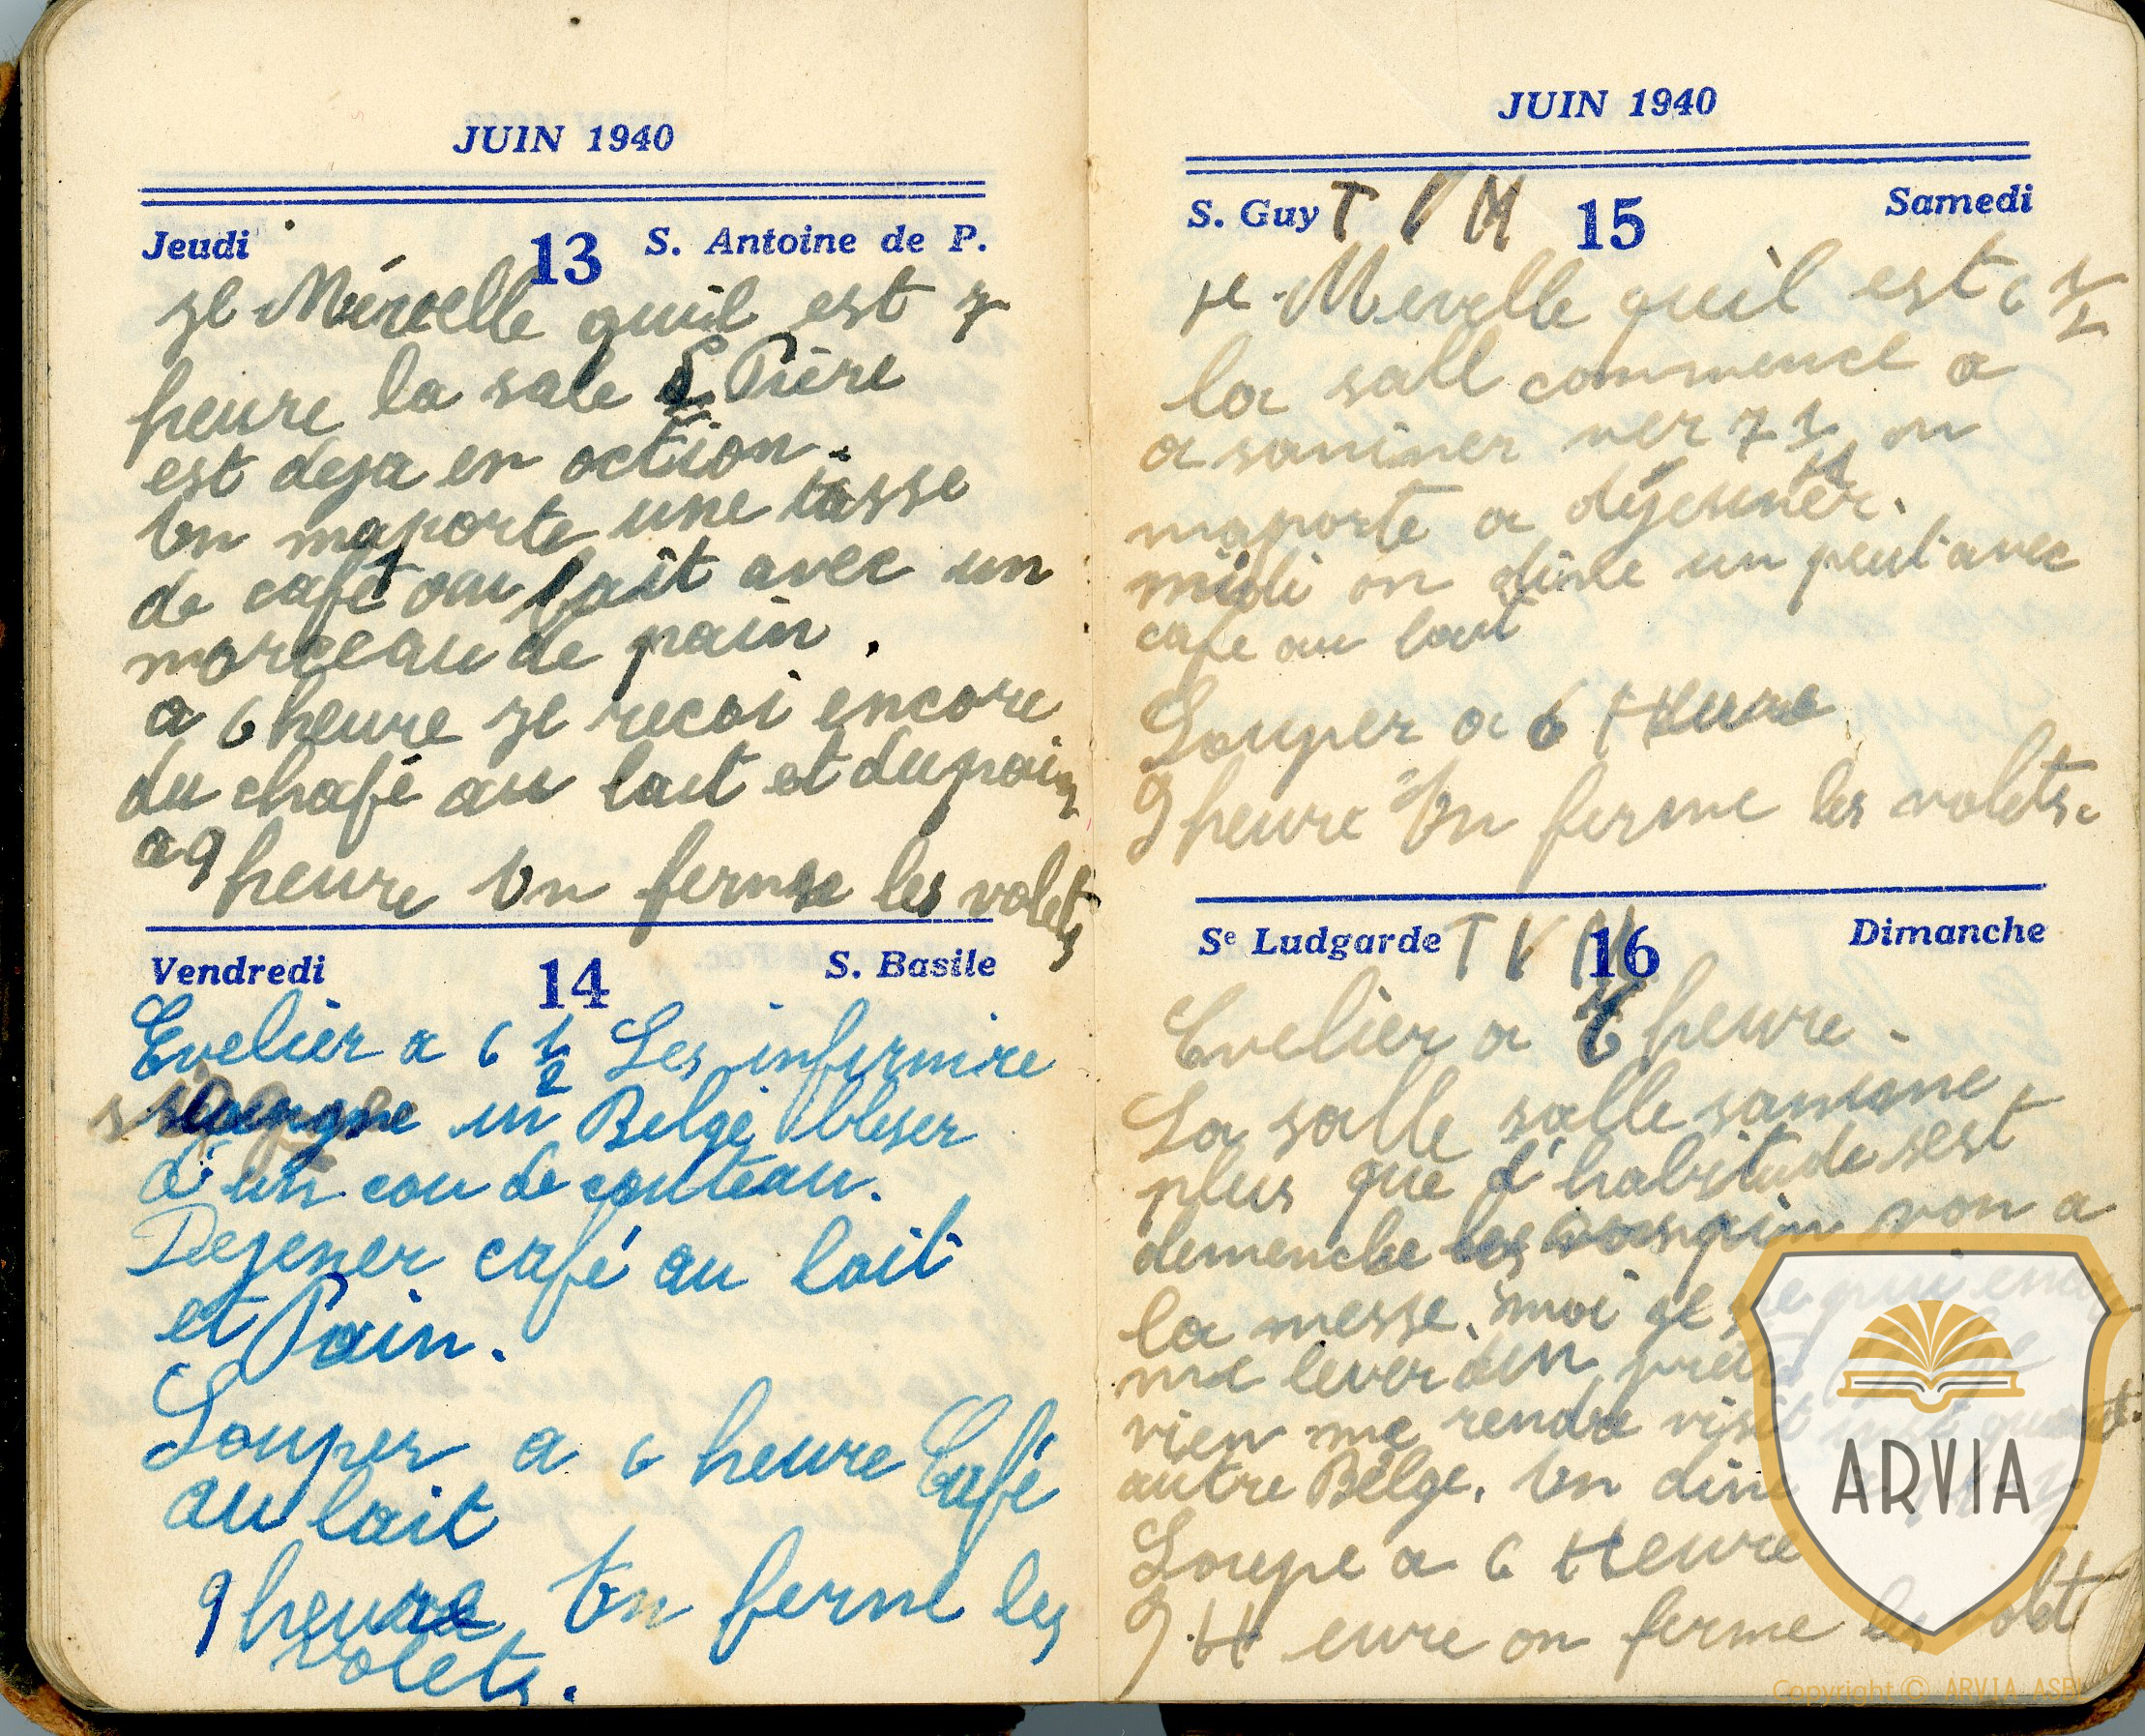 JUIN 1940
Jeudi 13 S. Antoine de P.
je Mérvelle quil est 7
heure la sale S Pière
est deja en action.
On maporte une tasse
de café au lait avec un
morceau de pain.
a 6 heure je recoi encore
du chafé au lait et du pain
a 9 heure On ferme les volets
Vendredi 14 S. Basile
Evelier a 6 1/2 Les infirmire
un Belge bleser
d'un cou de couteau.
Dejener café au lait
et Pain.
Souper a 6 heure Café
au lait
9 heure On ferme les
volets.
JUIN 1940
S. Guy T V M 15 Samedi
je Mevelle quil est 6 1/2
la sall commence a
a saniner ver 7 1/2 on
maporte a déjeuner.
midi on dine un peut avec
cafe au lait
Souper a 6 Heure
9 heure On ferme les volets.
Se Ludgarde T V M 16 Dimanche
Evelier a 6 heure.
La salle salle sanime
plus que d'habitude sest
demenche les von a
la messe. moi je
me lever
vien me rendre visit
autre Belge. On dine
Soupe a 6 Heure
9 H eure on ferme les volet
ARVIA
Copyright © ARVIA ASB